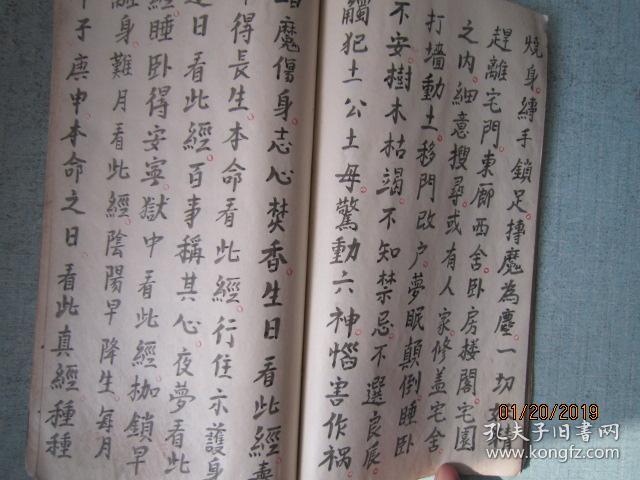 燒身縛手鎖足摶魔為塵一切妖精
趕離宅門東廊西舍卧房楼閣宅園
之内細意搜尋或有人家修盖宅舍
打墙動土移門改户夢眠顛倒睡卧
不安樹木枯竭不知禁忌不選良辰
觸犯土公土母驚動六神惱害作禍
魔傷身志心焚香生日看此經
得長生本命看此經行住示護身
日看此經百事稱其心夜夢看此
經睡卧得安寧獄中看此經枷鎖早
離身難月看此經陰陽早降生每月
甲子庚申本命之日看此真經種種
01/20/2019
孔夫子旧書网